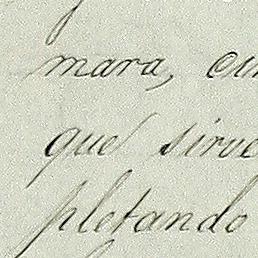 mara, cu
que sirve
pletando